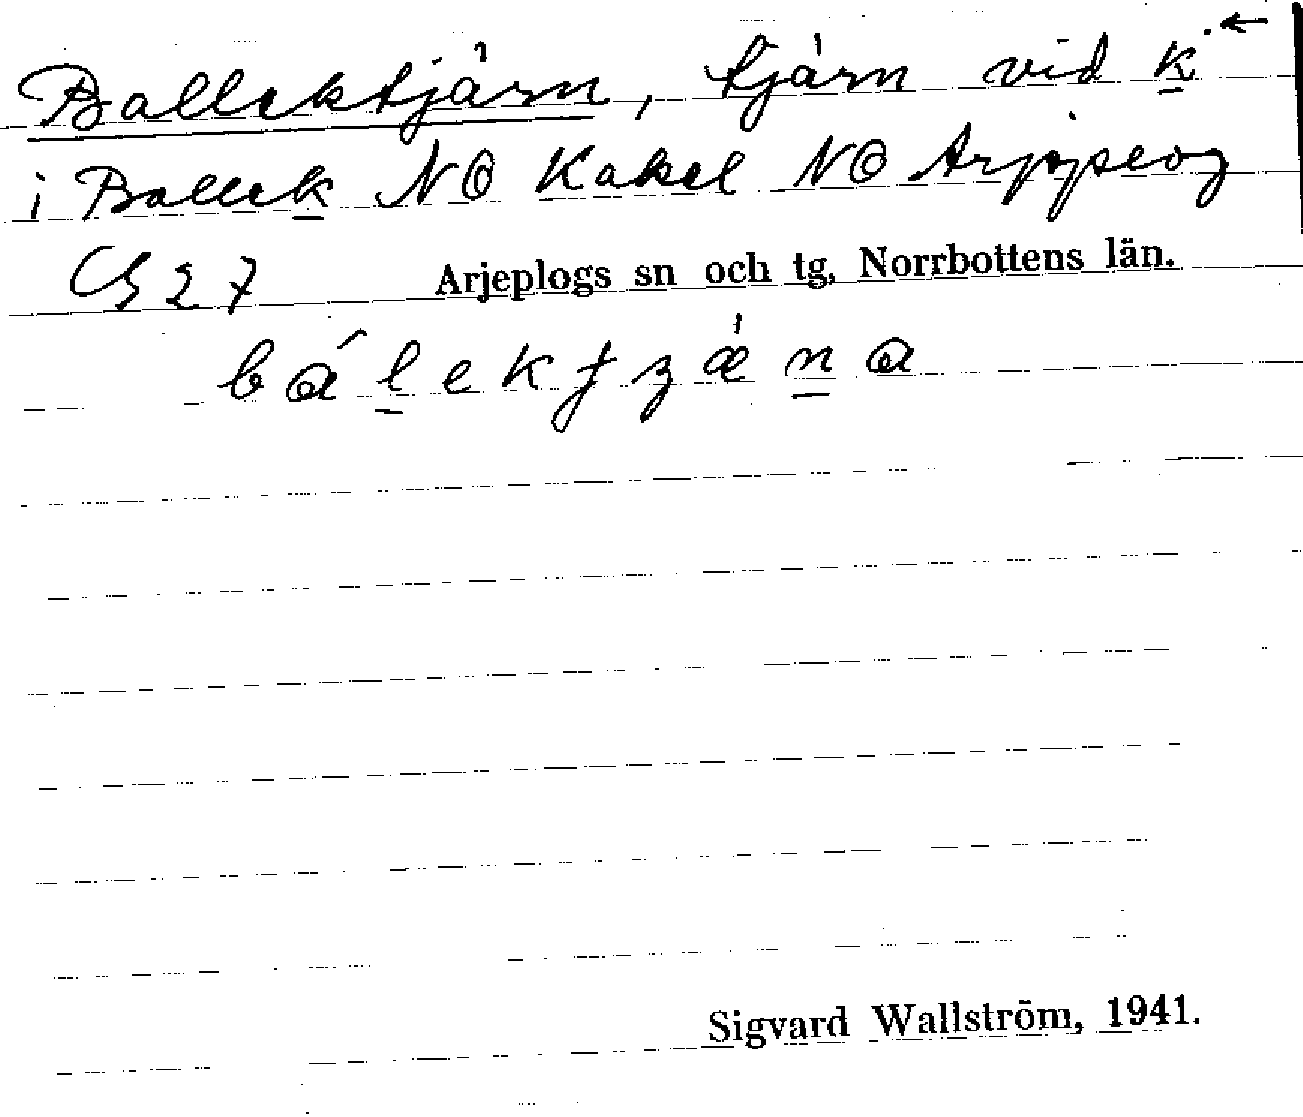 Ballektjärn, tjärn vid k ←
i Ballek NO Kakel NO Arjeplog
27 Arjeplogs sn och tg, Norrbottens län.
Sigvard Wallström, 1941.